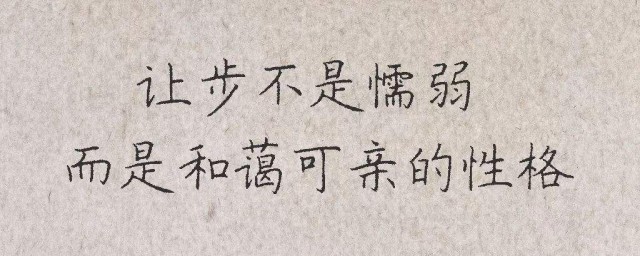 让步不是懦弱
而是和蔼可亲的性格